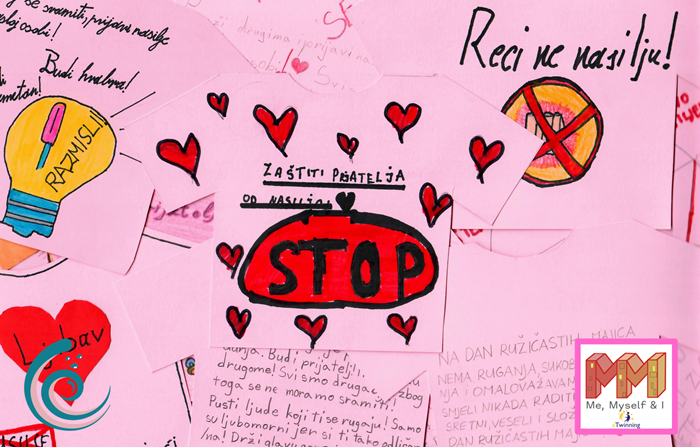 se sramiti, prijavi nasilje
osobi!
Budi hrabra!
RAZMISLI!
drugima i prijavi na
Reci ne nasilju!
ZAŠTITI PRIJATELJA
OD NASILJA!
STOP
Ljubav
Budi prijatelj
drugome! Svi smo drugač zbog
toga se ne moramo sramiti!
Pusti ljude koji ti se rugaju! Samo
su ljubomorni jer si ti tako odličan
/na! Drži glavu
NA DAN RUŽIČASTIH MAJICA
NEMA RUGANJA SUKOB
NJA I OMALOVAŽAVAN
SMJELI NIKADA RADITI
SRETNI, VESELI I SLOŽ
DAN RUŽIČASTIH MAJ
MM
Me, Myself & I
eTwinning